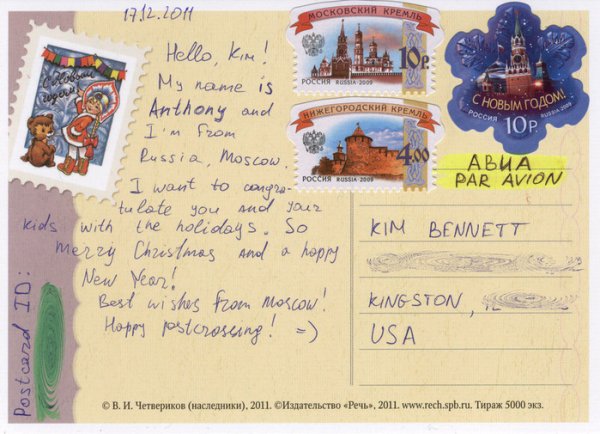 17.12.2011
Hello, Kim!
My name is
Anthony and
I'm from
Russia, Moscow
I want to congra-
tulate you and your
kids with the holidays. So
Merry Christmas and a happy
New Year!
Best wishes from Moscow!
Happy postcrossing! =)
Postcard ID:
С Новым
годом!
МОСКОВСКИЙ КРЕМЛЬ
10р.
РОССИЯ RUSSIA·2009
НИЖЕГОРОДСКИЙ КРЕМЛЬ
4.00
РОССИЯ RUSSIA·2009
С НОВЫМ ГОДОМ!
РОССИЯ RUSSIA·2009
10р.
АВИА
PAR AVION
KIM BENNETT
KINGSTON,
USA
© В. И. Четвериков (наследники), 2011. ©Издательство «Речь», 2011. www.rech.spb.ru. Тираж 5000 экз.